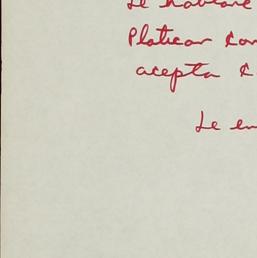 Le hablaré
Platicar con
acepta
Le en